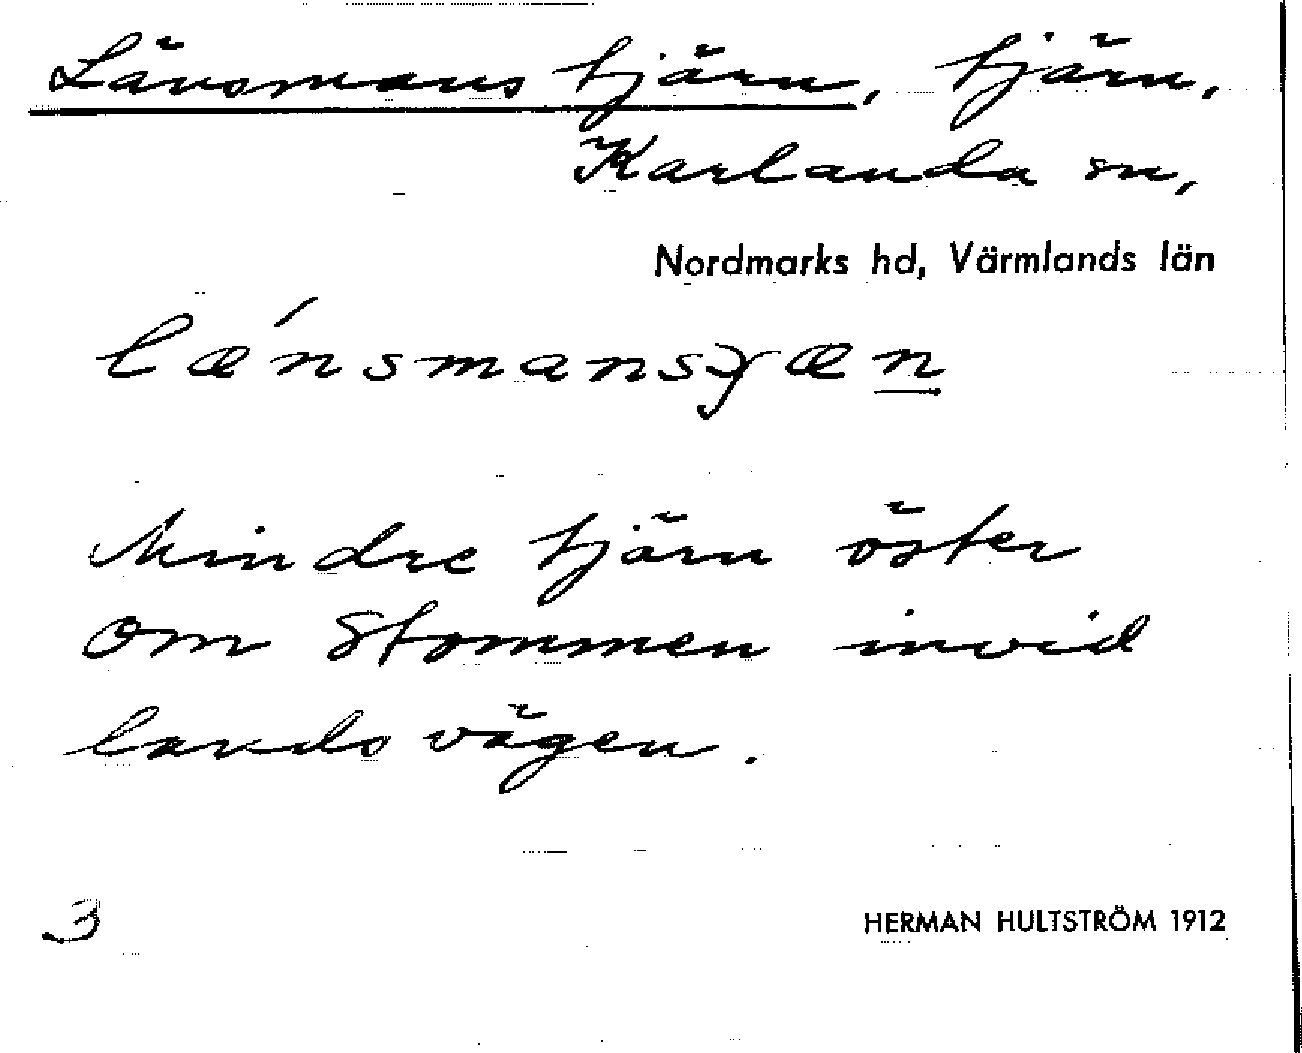 Länsmanstjärn, tjärn,
Karlanda sn,
Nordmarks hd, Värmlands län
lǽnsmansɟæn
Mindre tjärn öster
om Stommen invid
landsvägen.
3
HERMAN HULTSTRÖM 1912